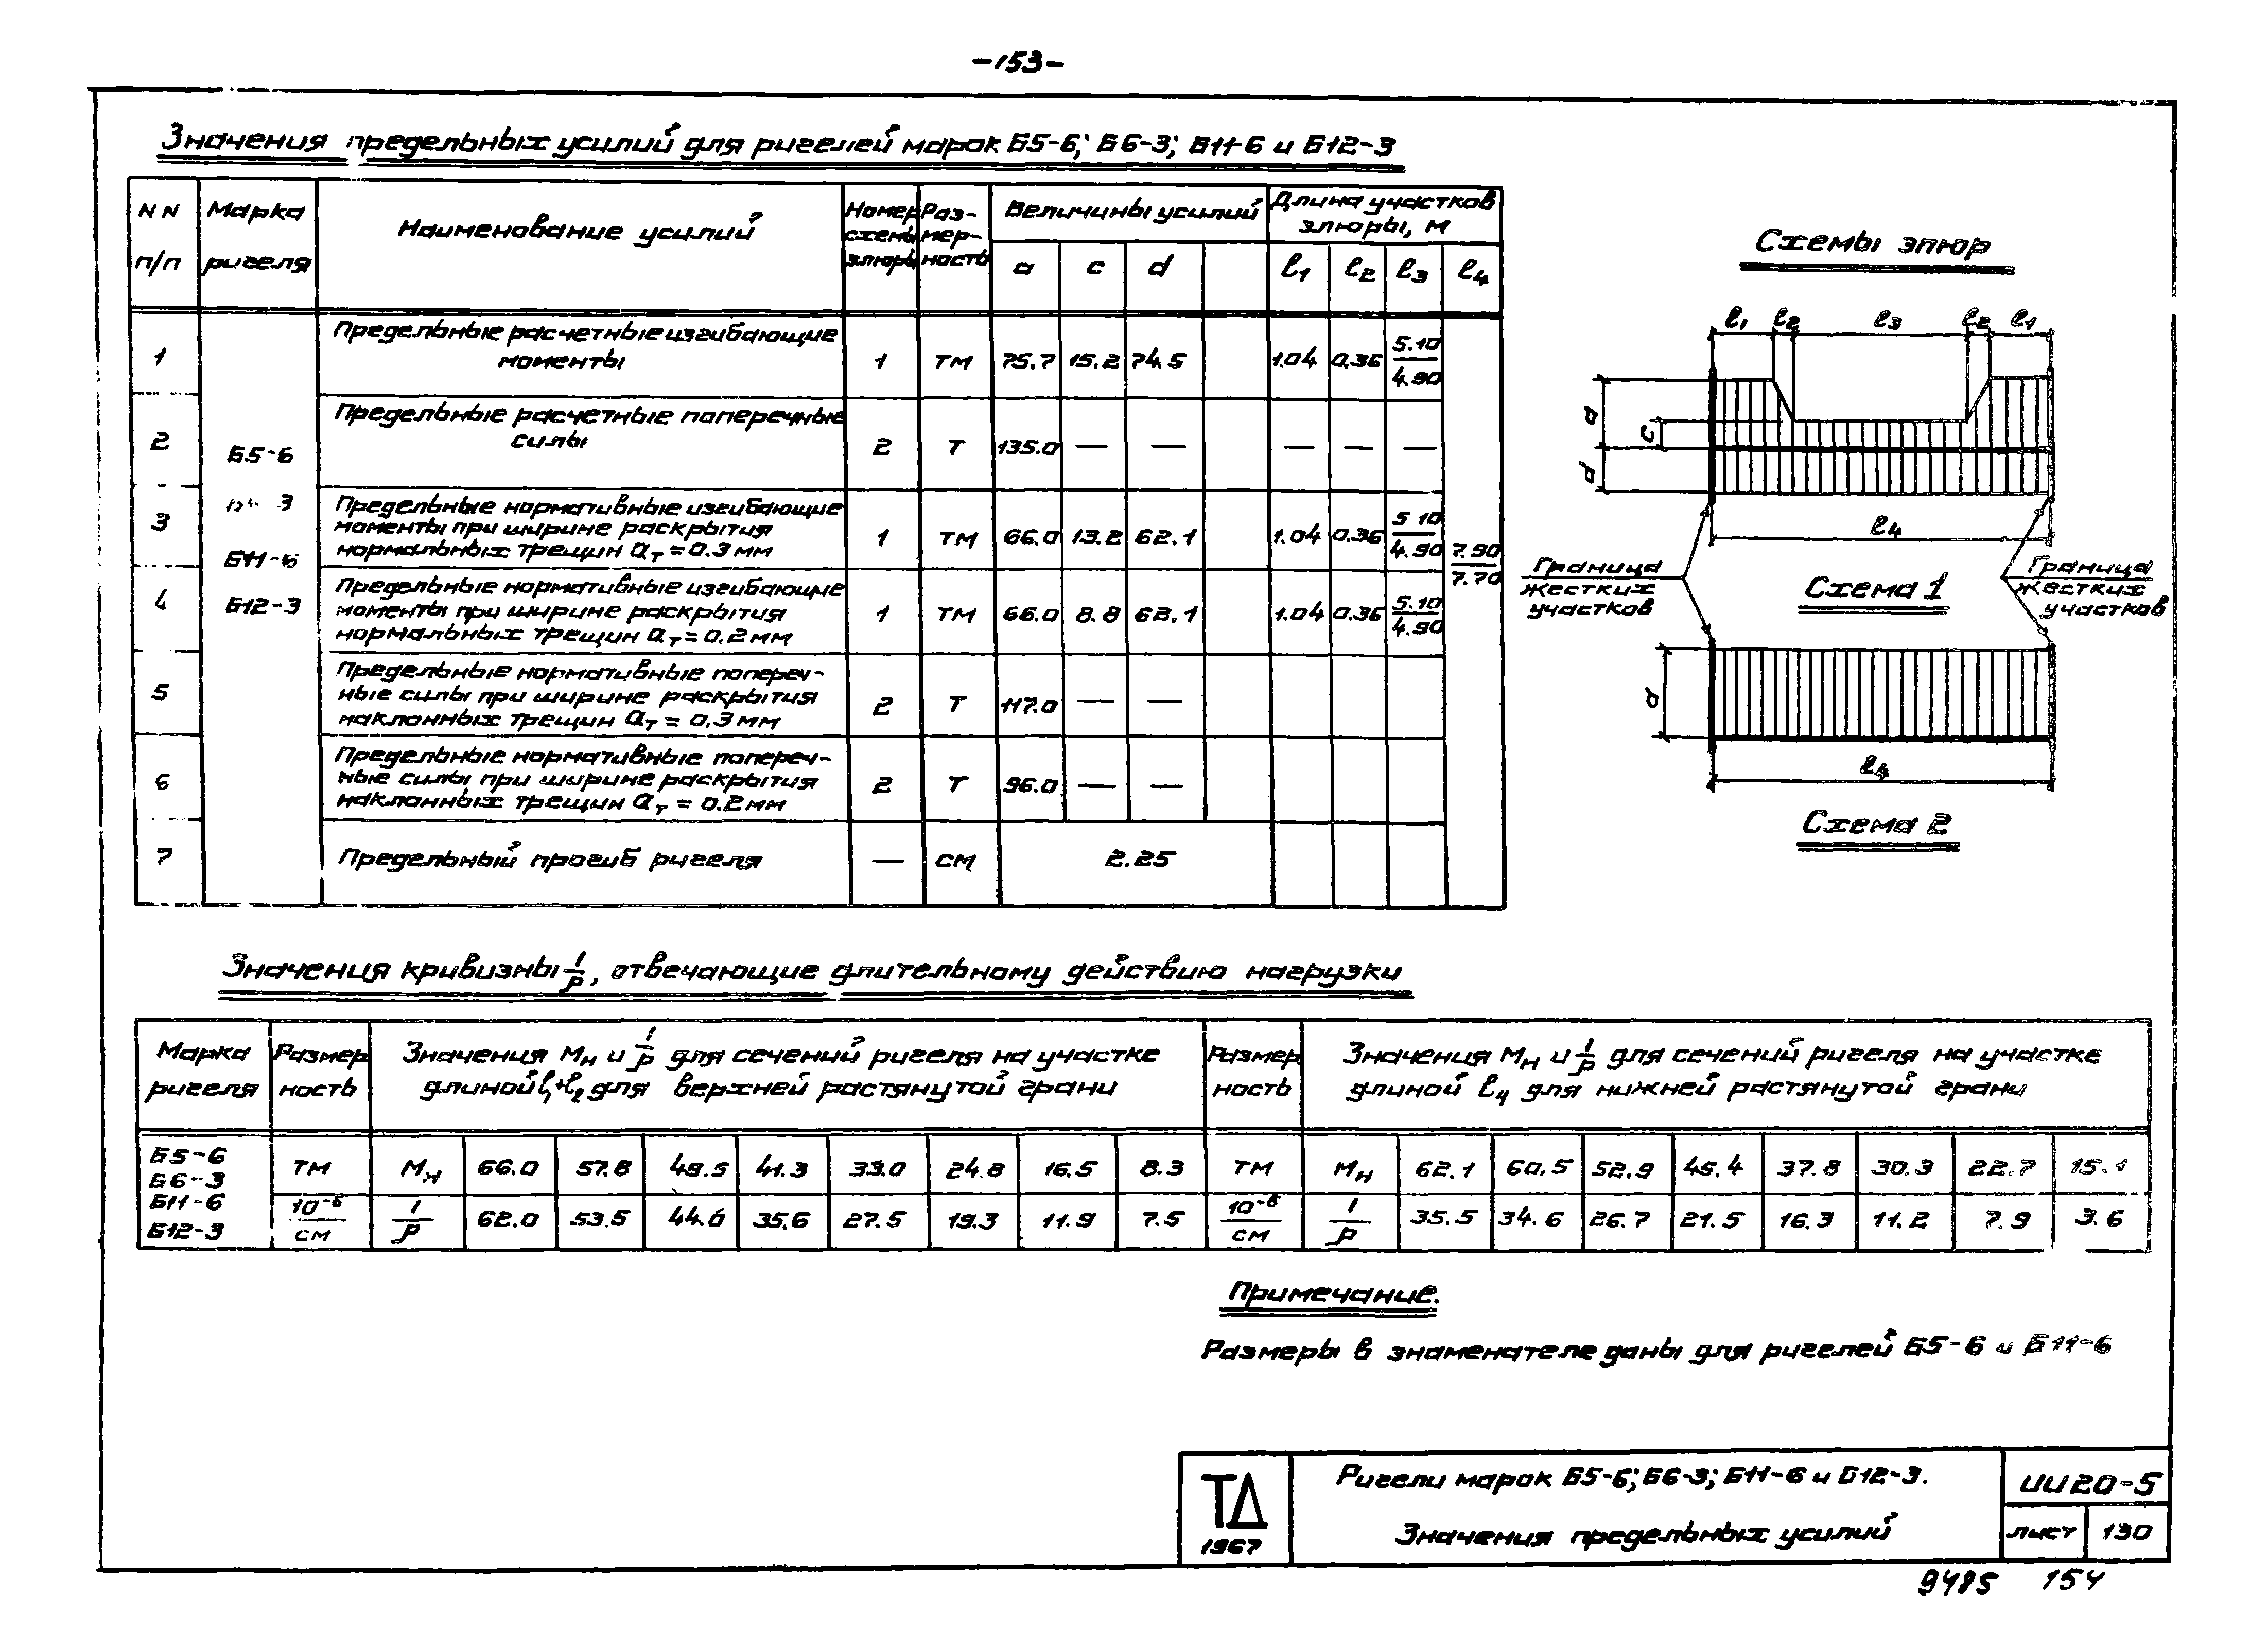 -153-
Значения предельных усилий для ригелей марок Б5-6; Б6-3; Б11-6 и Б12-3
NN п/п
Марка ригеля
Наименование усилий
Номер схемы эпюры
Раз-мер-ность
Величины усилий
Длина участков эпюры, м
a c d l1 l2 l3 l4
1 Предельные расчетные изгибающие моменты 1 тм 75.7 15.2 74.5 1.04 0.36 5.10/4.90
2 Предельные расчетные поперечные силы 2 т 135.0 — — — — —
Б5-6
3
Б11-6
Б12-3
3 Предельные нормативные изгибающие моменты при ширине раскрытия нормальных трещин aт = 0.3 мм 1 тм 66.0 13.2 62.1 1.04 0.36 5.10/4.90
7.90/7.70
4 Предельные нормативные изгибающие моменты при ширине раскрытия нормальных трещин aт = 0.2 мм 1 тм 66.0 8.8 62.1 1.04 0.36 5.10/4.90
5 Предельные нормативные попереч-ные силы при ширине раскрытия наклонных трещин aт = 0.3 мм 2 т 117.0 — —
6 Предельные нормативные попереч-ные силы при ширине раскрытия наклонных трещин aт = 0.2 мм 2 т 96.0 — —
7 Предельный прогиб ригеля — см 2.25
Схемы эпюр
l1 l2 l3 l2 l1
a c d
l4
Граница жестких участков
Схема 1
Граница жестких участков
a
l4
Схема 2
Значения кривизны 1/ρ, отвечающие длительному действию нагрузки
Марка ригеля
Размер ность
Значения Mн и 1/ρ для сечений ригеля на участке длиной l1+l2 для верхней растянутой грани
Размер ность
Значения Mн и 1/ρ для сечений ригеля на участке длиной l4 для нижней растянутой грани
Б5-6
Б6-3
Б11-6
Б12-3
тм Mн 66.0 57.8 49.5 41.3 33.0 24.8 16.5 8.3 тм Mн 62.1 60.5 52.9 45.4 37.8 30.3 22.7 15.1
10⁻⁶/см 1/ρ 62.0 53.5 44.6 35.6 27.5 19.3 11.9 7.5 10⁻⁶/см 1/ρ 35.5 34.6 26.7 21.5 16.3 11.2 7.9 3.6
Примечание.
Размеры в знаменателе даны для ригелей Б5-6 и Б11-6
ТД
1967
Ригели марок Б5-6; Б6-3; Б11-6 и Б12-3.
Значения предельных усилий
ИИ20-5
лист 130
9485 154